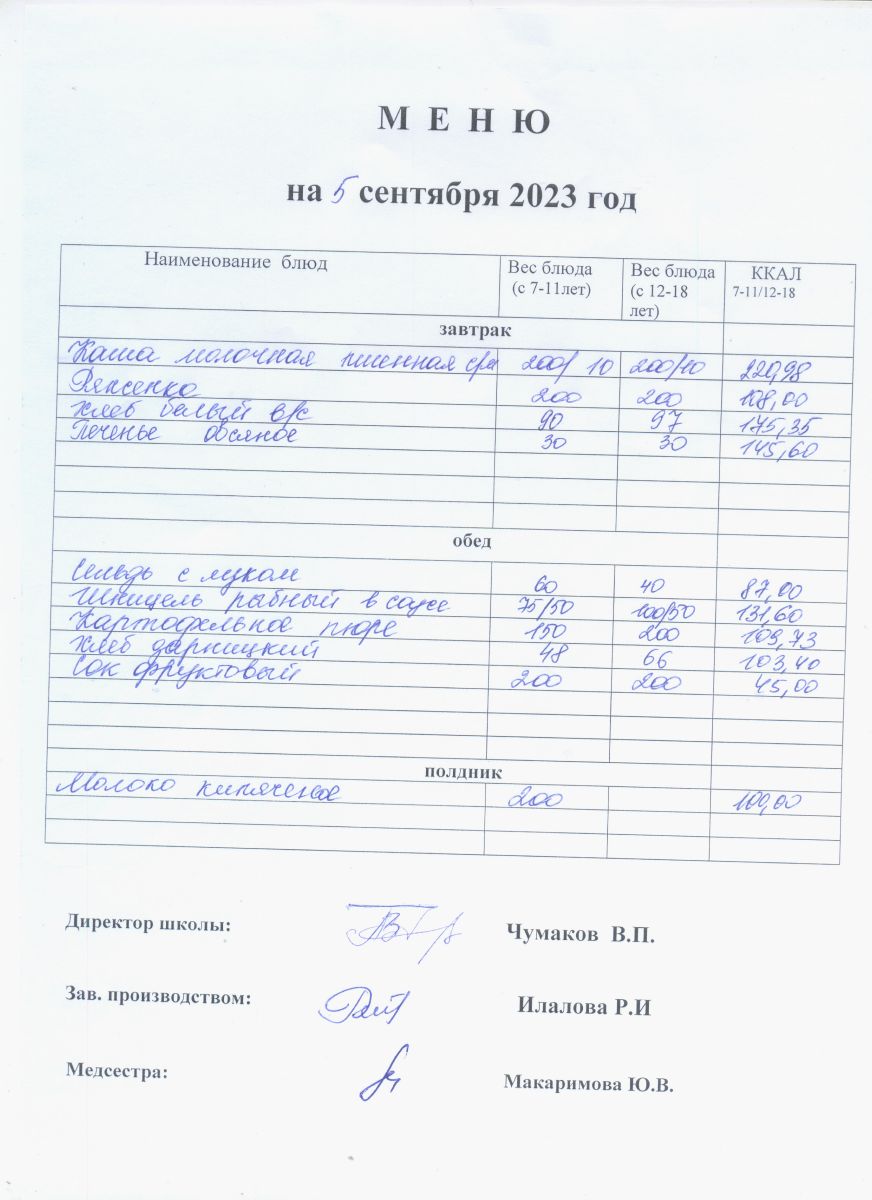 М Е Н Ю
на 5 сентября 2023 год
Наименование блюд Вес блюда (с 7-11лет) Вес блюда (с 12-18 лет) ККАЛ 7-11/12-18
завтрак
Каша молочная пшенная 200/10 200/10 220,98
Ряженка 200 200 108,00
Хлеб белый в/с 90 97 175,35
Печенье овсяное 30 30 145,60
обед
Сельдь с луком 60 40 87,00
Шницель рыбный в соусе 75/50 100/50 131,60
Картофельное пюре 150 200 109,73
Хлеб дарницкий 48 66 103,40
Сок фруктовый 200 200 45,00
полдник
Молоко кипяченое 200 109,00
Директор школы: Чумаков В.П.
Зав. производством: Илалова Р.И
Медсестра: Макаримова Ю.В.